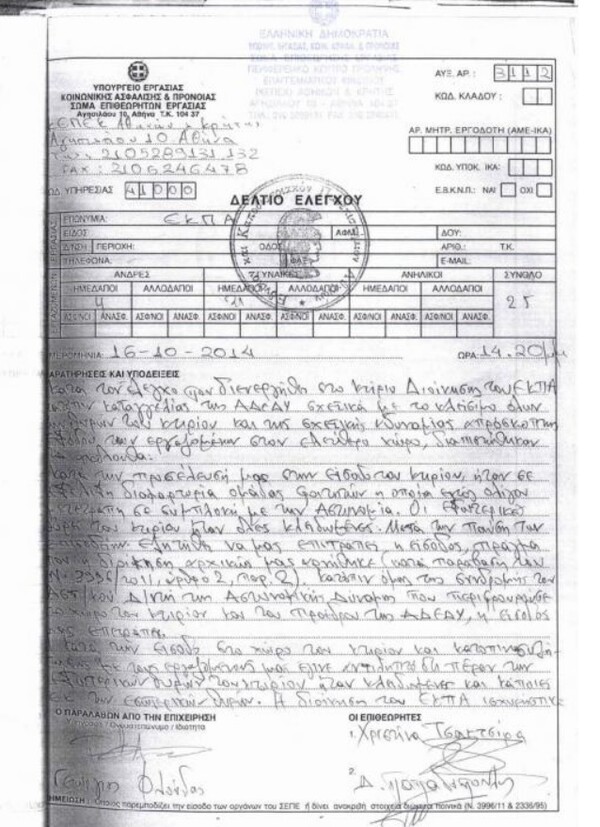 ΕΛΛΗΝΙΚΗ ΔΗΜΟΚΡΑΤΙΑ
ΥΠΟΥΡΓΕΙΟ ΕΡΓΑΣΙΑΣ
ΚΟΙΝΩΝΙΚΗΣ ΑΣΦΑΛΙΣΗΣ & ΠΡΟΝΟΙΑΣ
ΣΩΜΑ ΕΠΙΘΕΩΡΗΤΩΝ ΕΡΓΑΣΙΑΣ
Αγησιλάου 10, Αθήνα Τ.Κ. 104 37
ΑΥΞ. ΑΡ.: 3112
ΚΩΔ. ΚΛΑΔΟΥ:
Αγησιλάου 10 Αθήνα
2105289131, 132
FAX: 2105246478
ΑΡ. ΜΗΤΡ. ΕΡΓΟΔΟΤΗ (ΑΜΕ-ΙΚΑ)
ΚΩΔ. ΥΠΟΚ. ΙΚΑ:
ΥΠΗΡΕΣΙΑΣ 41000
Ε.Β.Κ.Ν.Π.: ΝΑΙ ΟΧΙ
ΔΕΛΤΙΟ ΕΛΕΓΧΟΥ
ΕΠΩΝΥΜΙΑ: ΕΚΠΑ
ΕΙΔΟΣ ΑΦΜ ΔΟΥ:
Δ/ΝΣΗ ΠΕΡΙΟΧΗ: ΟΔΟΣ ΑΡΙΘ.: Τ.Κ.
ΤΗΛΕΦΩΝΑ: E-MAIL:
ΑΝΔΡΕΣ ΓΥΝΑΙΚΕΣ ΑΝΗΛΙΚΟΙ ΣΥΝΟΛΟ
ΗΜΕΔΑΠΟΙ ΑΛΛΟΔΑΠΟΙ ΗΜΕΔΑΠΟΙ ΑΛΛΟΔΑΠΟΙ ΗΜΕΔΑΠΟΙ ΑΛΛΟΔΑΠΟΙ
4 21 25
ΑΣΦ/ΝΟΙ ΑΝΑΣΦ. ΑΣΦ/ΝΟΙ ΑΝΑΣΦ. ΑΣΦ/ΝΟΙ ΑΝΑΣΦ. ΑΣΦ/ΝΟΙ ΑΝΑΣΦ. ΑΣΦ/ΝΟΙ ΑΝΑΣΦ. ΑΣΦ/ΝΟΙ ΑΝΑΣΦ.
ΗΜΕΡΟΜΗΝΙΑ: 16-10-2014 ΩΡΑ: 14.20μμ
ΠΑΡΑΤΗΡΗΣΕΙΣ ΚΑΙ ΥΠΟΔΕΙΞΕΙΣ
Κατά τον έλεγχο που διενεργήθη στο κτίριο Διοίκησης του ΕΚΠΑ
κατόπιν καταγγελίας της ΑΔΕΔΥ σχετικά με το κλείσιμο όλων
των θυρών του κτιρίου και της σχετικής αδυναμίας απρόσκοπτης
εξόδου των εργαζομένων στον ελεύθερο χώρο, διαπιστώθηκαν
τα ακόλουθα:
Κατά την προσέλευσή μας στην είσοδο του κτιρίου, ήταν σε
εξέλιξη διαμαρτυρία ομάδας φοιτητών η οποία εντός ολίγου
σε συμπλοκή με την Αστυνομία. Οι εξωτερικές
θύρες του κτιρίου ήταν όλες κλειδωμένες. Μετά την παύση των
ζητήθη να μας επιτραπεί η είσοδος, πράγμα
που η διοίκηση αρχικώς μας αρνήθηκε (κατά παράβαση του
Ν. 3996/2011, άρθρο 2, παρ. 2). Κατόπιν όμως της συνδρομής του
Δ/ντή της Αστυνομικής Δύναμης που περιφρουρούσε
το χώρο του κτιρίου και του προέδρου της ΑΔΕΔΥ, η είσοδος
μας επετράπη.
Κατά την είσοδο στο χώρο του κτιρίου και κατόπιν συζή-
με τους εργαζόμενους μας έγινε αντιληπτό ότι πέραν των
εξωτερικών θυρών του κτιρίου ήταν κλειδωμένες και κάποιες
εκ των εσωτερικών θυρών. Η διοίκηση του ΕΚΠΑ ισχυρίστηκε
Ο ΠΑΡΑΛΑΒΩΝ ΑΠΟ ΤΗΝ ΕΠΙΧΕΙΡΗΣΗ ΟΙ ΕΠΙΘΕΩΡΗΤΕΣ
/ Ονοματεπώνυμο / Ιδιότητα
1. Χριστίνα
2. Δ.
ΣΗΜΕΙΩΣΗ: Όποιος παρεμποδίζει την είσοδο των οργάνων του ΣΕΠΕ ή δίνει ανακριβή στοιχεία διώκεται ποινικά (Ν. 3996/11 & 2336/95)